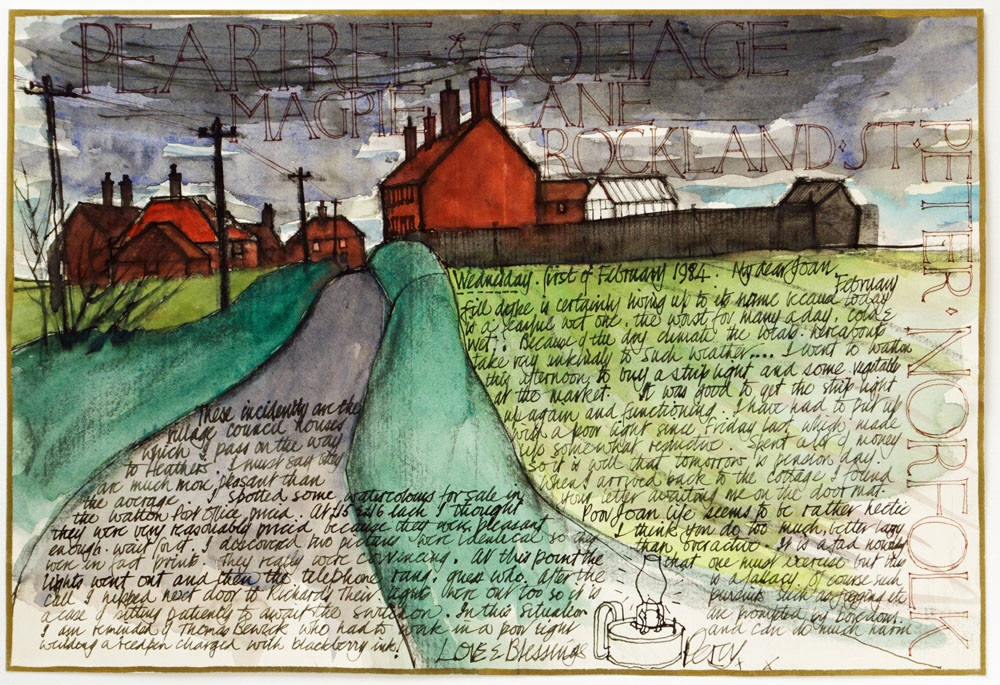 PEARTREE COTTAGE
MAGPIE LANE
ROCKLAND · ST · PETER · NORFOLK
Wednesday. first of February 1984. My dear Joan, February
fill is certainly living up to its name because today
is a fearful wet one, the worst for many a day, cold &
wet! Because of the dry climate the locals hereabouts
take very unkindly to such weather.... I went to Watton
this afternoon, to buy a strip light and some vegetables
at the market. It was good to get the strip light
up again and functioning. I have had to put up
with a poor light since Friday last which made
life somewhat Spent a lot of money
so it is well that tomorrow is pension day.
When I arrived back to the cottage I found
your letter awaiting me on the door mat.
Poor Joan life seems to be rather hectic
I think you do too much, better lazy
than overactive. It is a fad nowadays
that one must exercise but this
is a fallacy. Of course such
pursuits such as jogging etc
are prompted by
and can do much harm
These incidently are the
village council houses
which I pass on the way
to Heathers. I must say they
are much more pleasant than
the average. I spotted some watercolours for sale in
the Watton Post Office priced. At £15 £16 each I thought
they were very reasonably priced because they were pleasant
enough. wait for it. I discovered two pictures were identical so they
were in fact prints they really were convincing. At this point the
lights went out and then the telephone rang. guess who. After the
call I nipped next door to Richards their lights were out too so it is
a case of sitting patiently to await the switch on. In this situation
I am reminded of Thomas Bewick who had to work in a poor light
wielding a reed pen charged with blackberry ink!
LOVE & Blessings Percy x x